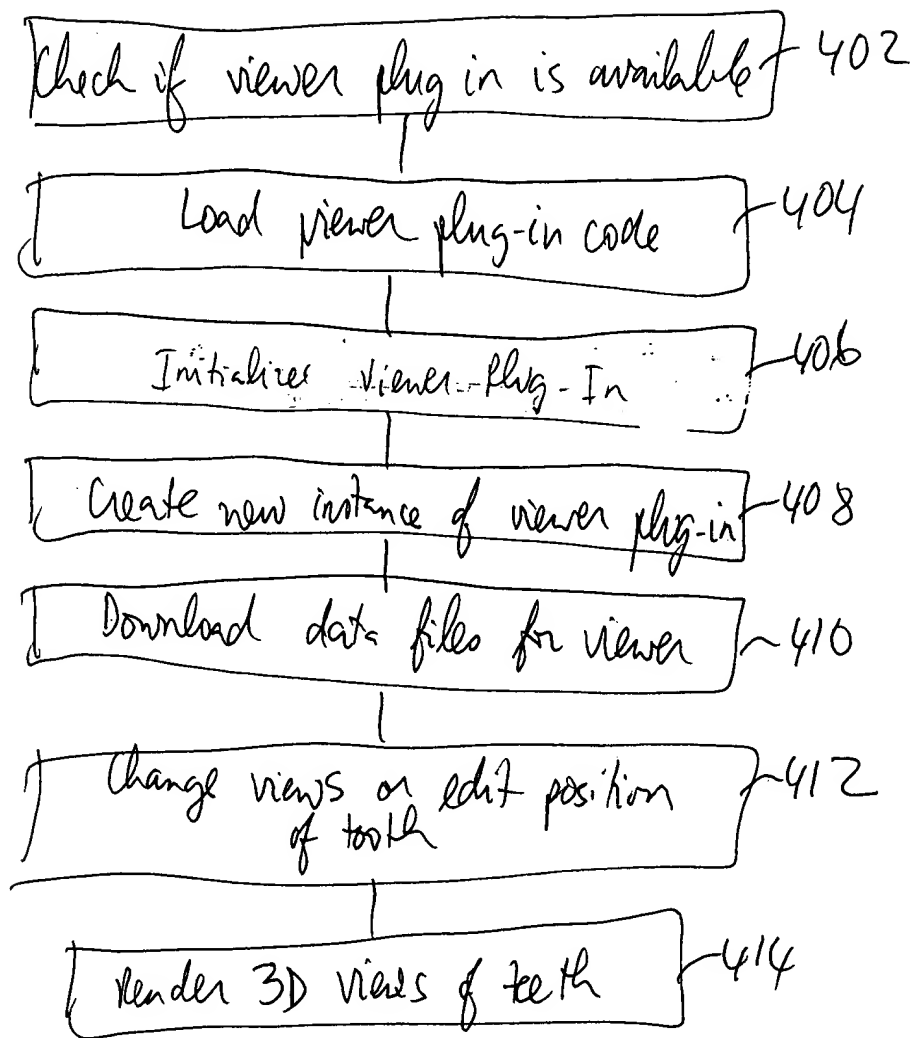 Check if viewer plug in is available 402
Load viewer plug-in code 404
Initializes viewer-Plug-In 406
Create new instance of viewer plug-in 408
Download data files for viewer 410
Change views or edit position 412
of tooth
Render 3D views of teeth 414